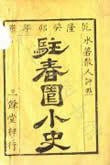 乾隆癸卯年鐫
水箬散人評點
駐春園小史
三餘堂梓行